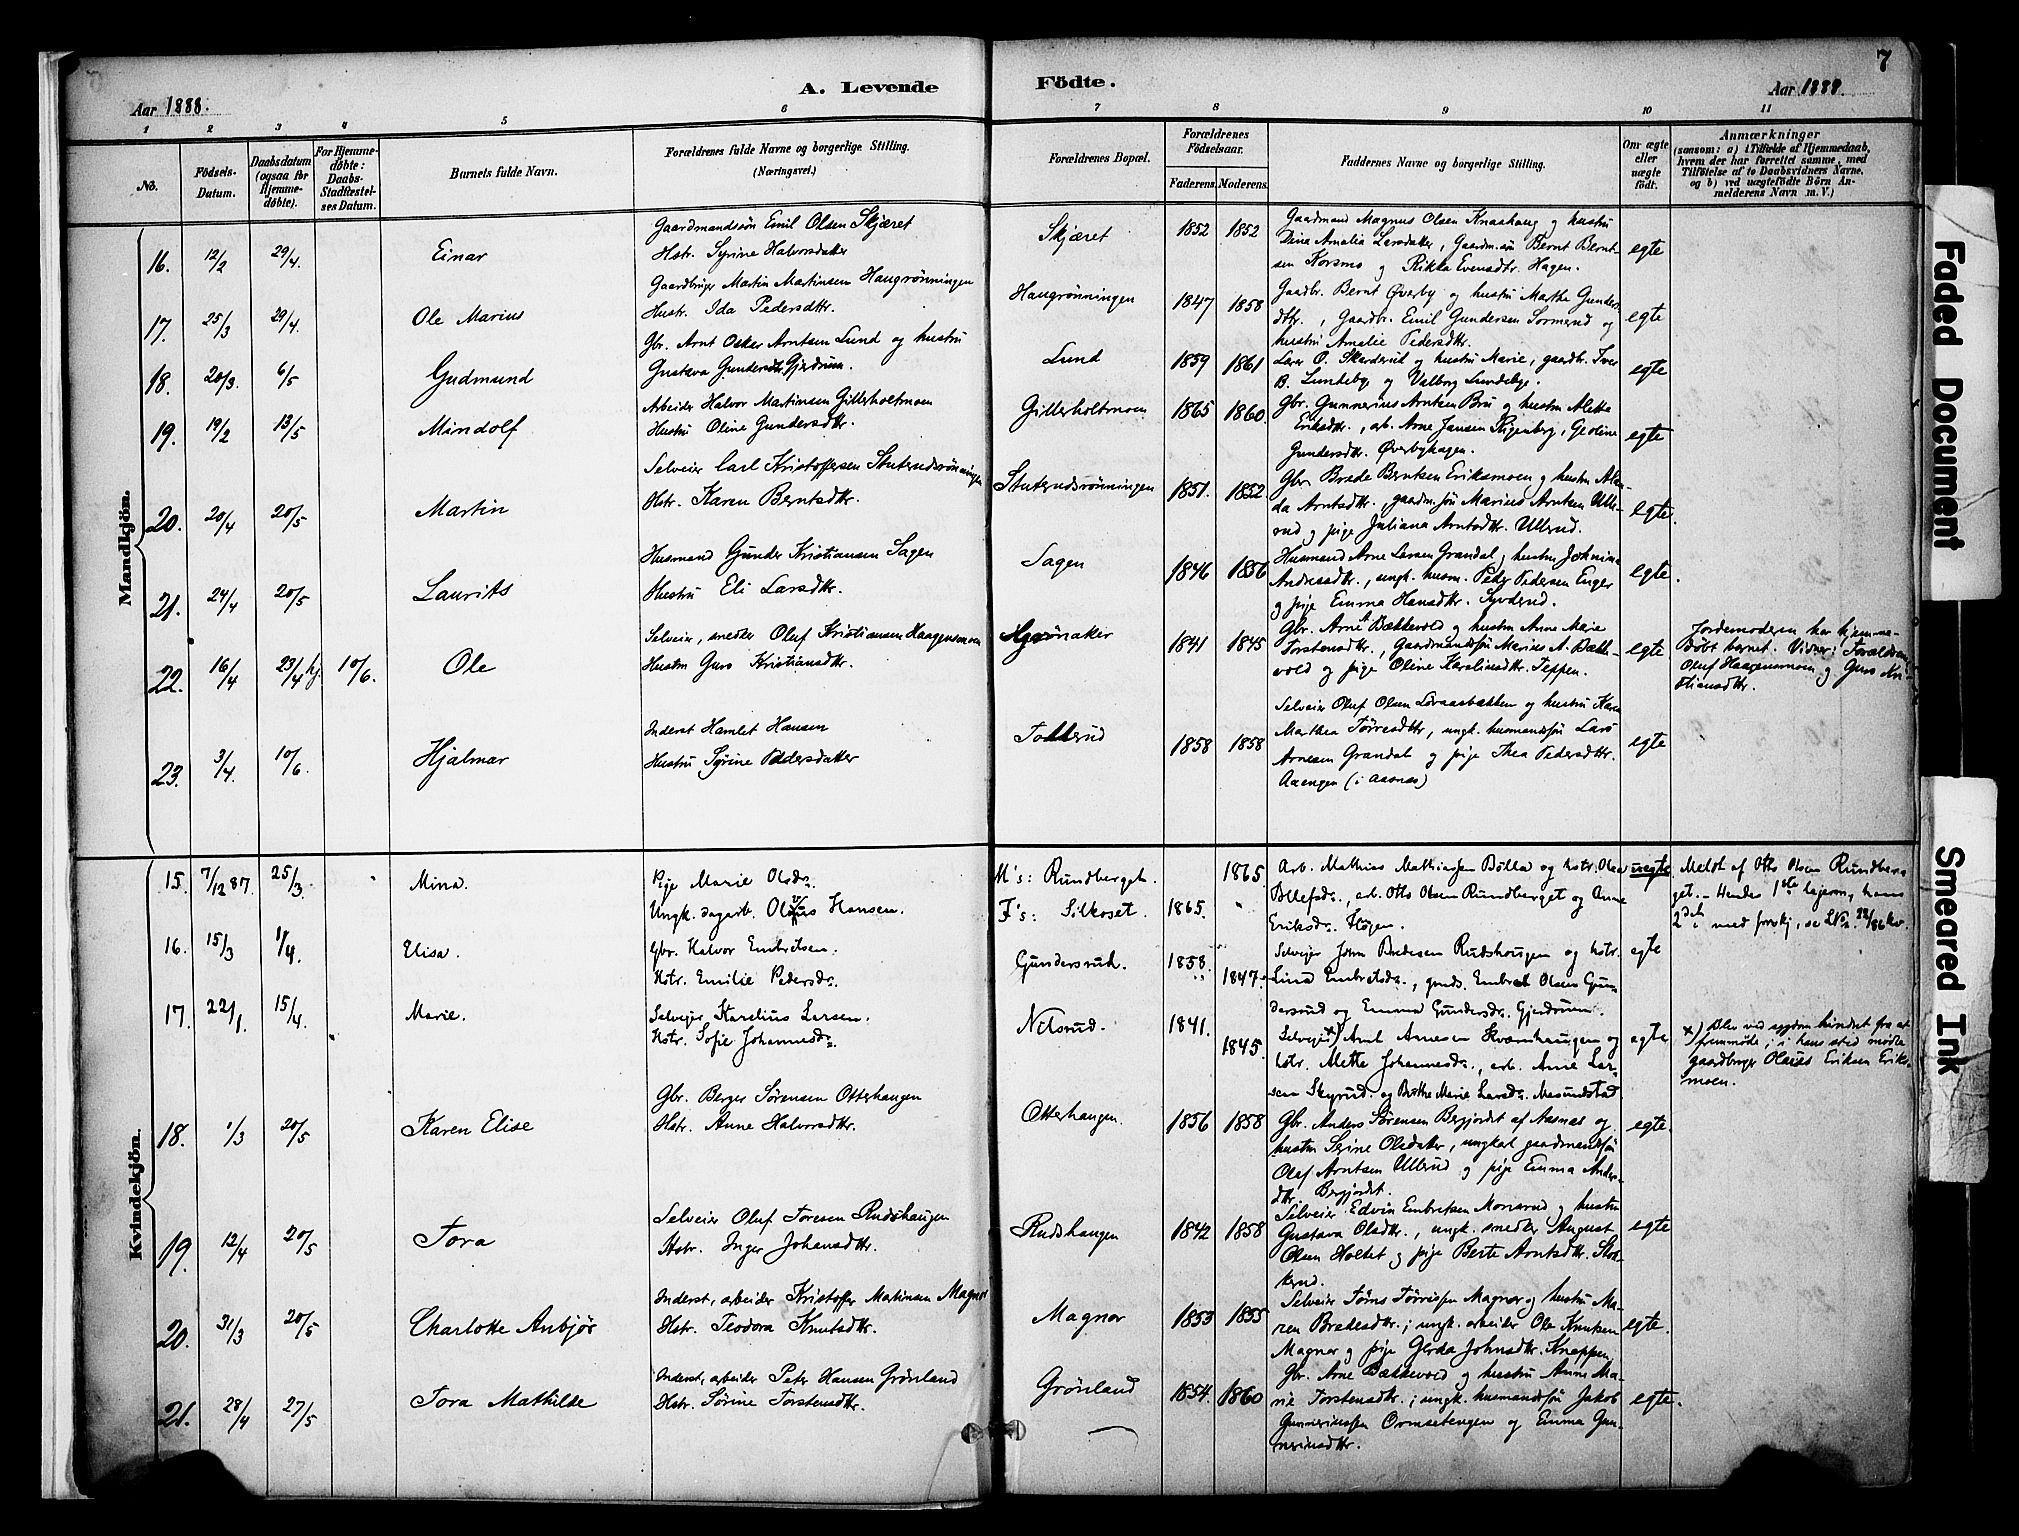 7
Aar 1888.
A. Levende
Födte.
Aar 1888.
1 2 3 4 5 6 7 8 9 10 11
No.
Fødsels-
Datum.
Daabsdatum
(ogsaa for
Hjemme-
døbte).
For Hjemme-
døbte:
Daabs-
Stadfæstel-
ses Datum.
Burnets fulde Navn.
Forældrenes fulde Navne og borgerlige Stilling.
(Næringsvei.)
Forældrenes Bopæl.
Forældrenes
Fødselsaar.
Faderens. Moderens.
Faddernes Navne og borgerlige Stilling.
Om ægte
eller
uægte
født.
Anmærkninger
(saasom: a) i Tilfælde af Hjemmedaab,
hvem der har forrettet samme, med
Tilføielse af to Daabsvidners Navne,
og b) ved uægtefødte Börn An-
melderens Navn m. V.)
Mandkjön.
16. 12/2 29/4. Einar
Gaardmandssön Emil Olsen Skjæret
Hstr. Syrine Halvorsdatter
Skjæret 1852 1852
Gaardmand Magnus Olsen Knashaug og hustru
Dina Amalia Larsdatter, Gaardm.sön Bernt Bernt-
sen Korsmo og Rikka Evensdtr. Hagen.
egte
17. 25/3 29/4. Ole Marius
Gaardbruger Martin Martinsen Haugrønningen
Hustr. Ida Pedersdttr.
Haugrønningen 1847 1858
Gaadbr. Bernt Øverby og hustru Marthe Gunders
dttr., Gaardbr. Emil Gundersen Sormerud og
hustru Amalie Pedersdtr.
egte
18. 20/3. 6/5 Gudmund
Gbr. Arnt Oskar Arntsen Lund og hustru
Gustava Gundersdtr Gjerdrum
Lund 1859 1861
Lærer O. Skarderud og hustru Marie, gaardbr. Iver
B. Lundeby og Valborg Lundeby.
egte
19. 19/2 13/5 Mindolf
Arbeider Halvor Martinsen Gillerholtmoen
Hustru Oline Gundersdtr.
Gillerholtmoen 1865 1860.
Gbr. Gunnerius Arntsen Bru og hustru Aletta
Eriksdtr., arb. Arne Jansen Kigenberg, Geoline
Gundersdtr. Øverbyhagen.
egte
20. 20/4 20/5 Martin
Selveier Carl Kristoffersen Stuterudsrönningen
Hstr. Karen Berntsdtr.
Stuterudsrönningen 1851. 1852
Gbr. Brede Berntsen Eriksmoen og hustru Alan-
da Arntsdtr. gaardm.sön Marius Arntsen Ulle-
rud og pige Juliana Arntsdtr. Ullerud.
egte.
21. 24/4 20/5 Laurits
Husmand Gunder Kristiansen Sagen
Hustru Eli Larsdtr.
Sagen 1846 1856
Husmand Arne Larsen Grandal og hustru Joknina
Andreasdtr., ungk. husm. Peder Pedersen Enger
og pige Emma Hansdtr. Syverud.
egte.
22. 16/4 23/4 hj. 10/6. Ole
Selveier, smeder Oluf Kristiansen Haagensmoen
Hustru Guro Kristiansdtr.
Grönaker 1841 1845
Gbr. Arne A. Bækkevold og hustru Anne Marie
Torstensdtr., Gaardmandssön Marius A. Bække-
vold og pige Oline Karolinsdtr. Teppen.
egte
Jordemoderen har hjemme-
döbt barnet. Vidner: Forældrene
Oluf Haagensmoen og Guro Kri-
stiansdtr.
23. 3/4. 10/6. Hjalmar
Inderst Hamlet Hansen
Hustru Syrine Pedersdatter
Tollerud 1858 1858
Selveier Oluf Olsen Löraasbakken og hustru Karen
Marthea Törresdtr, ungk. husmandssön Lars
Arnesen Grandal og pige Thea Pedersdtr.
Aaengen (i Aasnes)
egte
Kvindekjön.
15. 7/12 87. 25/3. Mina.
Pige Marie Olsdr.
Ungk. dagarb. Olaus Hansen.
M's: Rundberget. 1865.
F's: Silkoset. 1865.
Arb. Mathias Mathiassen Bölla og hstr. Olea
Ollefsdr., arb. Otto Olsen Rundberget og Anne
Eriksdr. Högen.
uegte
Meldt af Otto Olsen Rundber-
get. Hendes 1ste leierm., hans
2det i med forskj., se No. 22/86 kv.
16. 15/3 1/4. Elisa.
Gbr. Halvor Embretsen.
Hstr. Emilie Pedersdr.
Gundersrud. 1858. 1847.
Selveier John Bredesen Rudshougen og hstr.
Lina Embretsdr., gmds. Embret Olsen Gun-
dersrud og Emma Gundersdr. Gjerdrum.
egte
17. 22/1. 15/4. Marie.
Selveier Karelius Larsen.
Hstr. Sofie Johannesdr.
Nilsrud. 1841. 1845.
Selveier x) Arnt Arnesen Kvernhaugen og
hstr. Mette Johannesdr., arb. Arne Lar-
sen Skyrud og Berthe Marie Larsdr. Mesundstad
egte
x) Blev ved sygdom hindret fra at
fremmøde; i hans sted mødte
gaardbruger Olaus Eriksen Eriks-
moen.
18. 1/3 20/5 Karen Elise
Gbr. Berger Sörensen Otterhaugen
Hstr. Anne Halvorsdtr.
Otterhaugen. 1856 1858
Gbr. Anders Sörensen Bergjordet af Aasnes og
hustru Syrine Olsdatter, ungkal gaardmandssön
Olaf Arntsen Ullerud og pige Emma Anders-
dtr. Bergjordet.
egte.
19. 12/4 20/5 Tora
Selveier Oluf Toresen Rudshaugen
Hstr. Inger Johansdtr.
Rudshaugen 1842 1858
Selveier Edvin Embretsen Monsrud og hustru
Gustava Olsdtr., ungk. smedlr. August
Olsen Holtet og pige Berte Arntsdtr. Stok-
kerud.
egte
20. 31/3 20/5 Charlotte Anbjör
Inderst, arbeider Kristoffer Martinsen Magnor
Hstr. Teodora Knutsdtr.
Magnor 1853 1855
Selveier Töris Törrisen Magnor og hustru Ma-
ren Bredesdtr.; ungk. arbeider Ole Knutsen
Magnor og pige Gerda Johnsdtr. Knappen.
egte.
21. 28/4 27/5 Tora Mathilde
Inderst, arbeider Peter Hansen Grönland
Hstr. Sörine Torstensdtr.
Grönland 1854. 1860
Gbr. Arne Bækkevold og hustru Anne Ma-
rie Torstensdtr.; ungk. husmandssön Jakob
Gunneriussen Ormsetengen og Emma Gun-
neriusdtr.
egte.
Faded Document
Smeared Ink